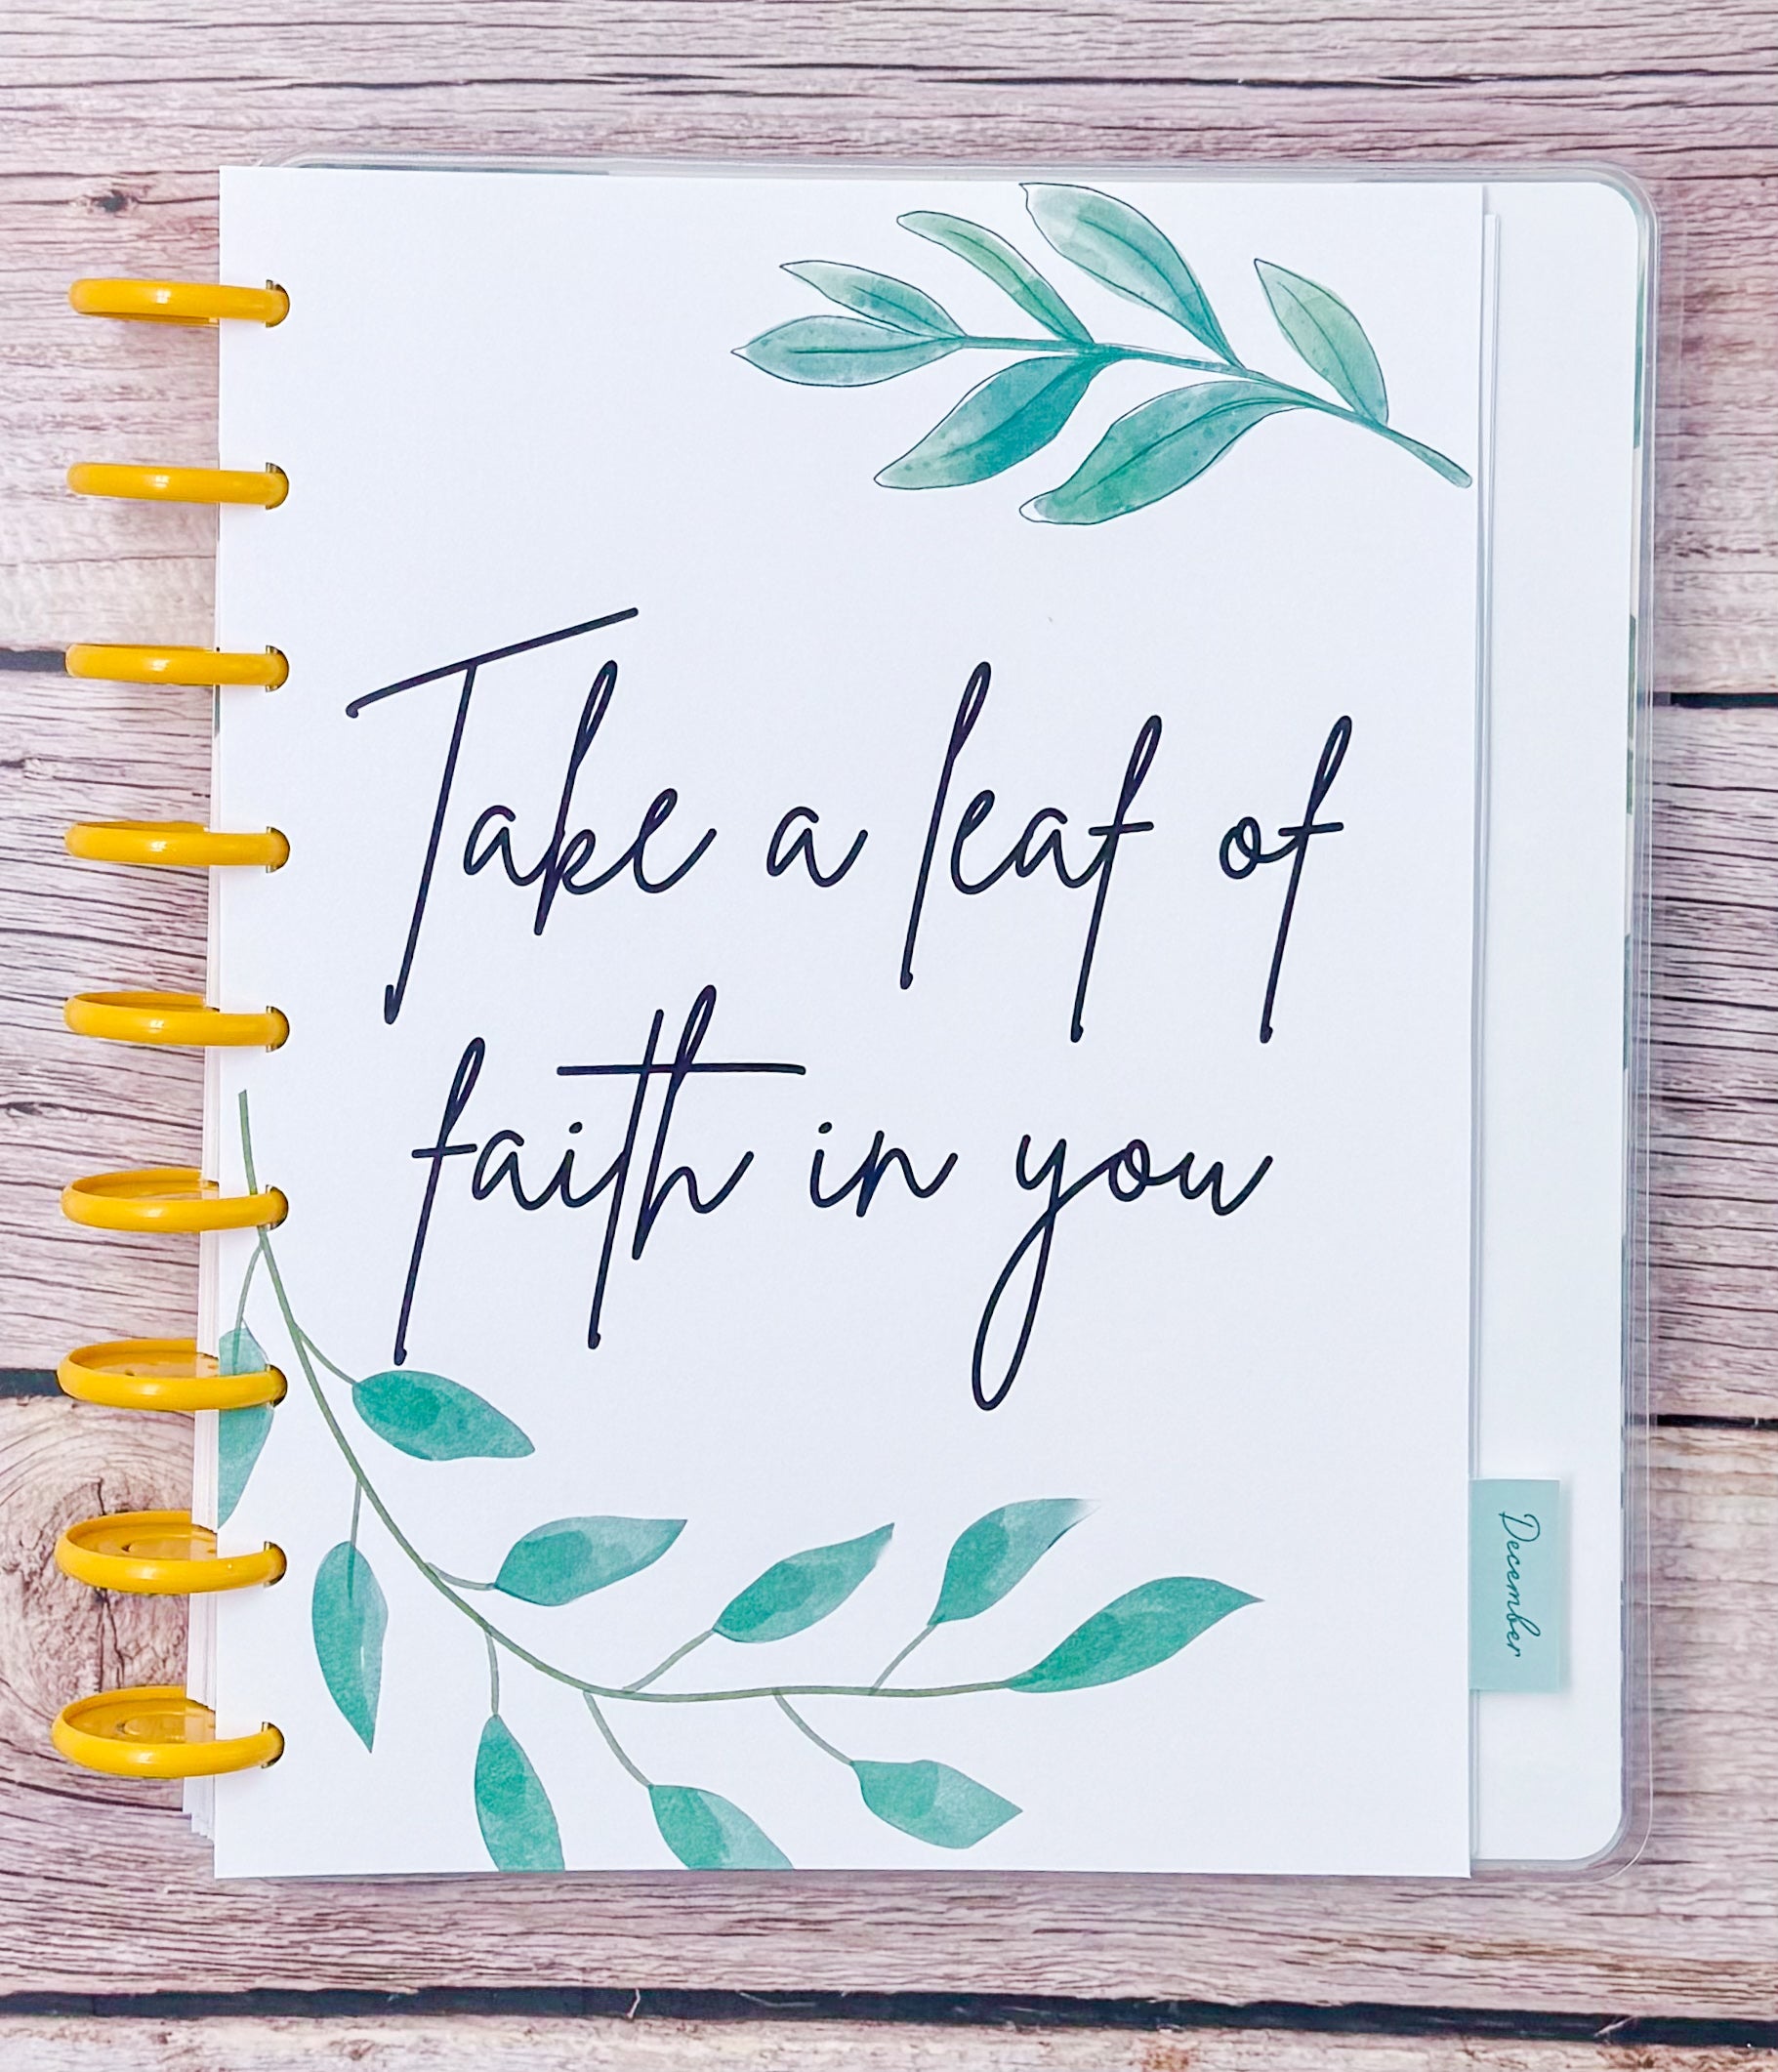 Take a leaf of
faith in you
December